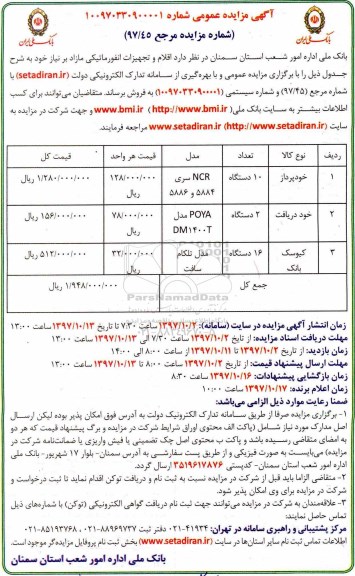 آگهی مزایده عمومی شماره ۱۰۰۹۷۰۳۳۰۹۰۰۰۰۱
(شماره مزایده مرجع ۹۷/۴۵)
بانک ملی ایران
بانک ملی ایران
بانک ملی اداره امور شعب استان سمنان در نظر دارد اقلام و تجهیزات انفورماتیکی مازاد بر نیاز خود به شرح
جدول ذیل را با برگزاری مزایده عمومی و با بهره‌گیری از سامانه تدارک الکترونیکی دولت (setadiran.ir) با
شماره مرجع (۹۷/۴۵) و شماره سیستمی (۱۰۰۹۷۰۳۳۰۹۰۰۰۰۱) به فروش برساند. متقاضیان می‌توانند برای کسب
اطلاعات بیشتر به سایت بانک ملی (http://www.bmi.ir) www.bmi.ir و جهت شرکت در مزایده به
سایت (http://www.setadiran.ir) www.setadiran.ir مراجعه فرمایند.
ردیف نوع کالا تعداد مدل قیمت هر واحد قیمت کل
۱ خودپرداز ۱۰ دستگاه NCR سری ۵۸۸۴ و ۵۸۸۶ ۱۲۸/۰۰۰/۰۰۰ ریال ۱/۲۸۰/۰۰۰/۰۰۰ ریال
۲ خود دریافت ۲ دستگاه POYA مدل DM۱۴۰۰T ۷۸/۰۰۰/۰۰۰ ریال ۱۵۶/۰۰۰/۰۰۰ ریال
۳ کیوسک بانک ۱۶ دستگاه مدل تلکام سافت ۳۲/۰۰۰/۰۰۰ ریال ۵۱۲/۰۰۰/۰۰۰ ریال
جمع کل ۱/۹۴۸/۰۰۰/۰۰۰ ریال
زمان انتشار آگهی مزایده در سایت (سامانه): ۱۳۹۷/۱۰/۲ ساعت ۷:۳۰ تا تاریخ ۱۳۹۷/۱۰/۱۳ ساعت ۱۳:۰۰
مهلت دریافت اسناد مزایده: از تاریخ ۱۳۹۷/۱۰/۲ ساعت ۷:۳۰ الی ۱۳۹۷/۱۰/۱۳ ساعت ۱۳:۰۰
زمان بازدید: از تاریخ ۱۳۹۷/۱۰/۲ تا ۱۳۹۷/۱۰/۱۱ از ساعت ۸:۰۰ الی ۱۴:۰۰
مهلت ارسال پیشنهاد قیمت: از تاریخ ۱۳۹۷/۱۰/۲ ساعت ۸:۰۰ تا ۱۳۹۷/۱۰/۱۳ ساعت ۱۳:۰۰
زمان بازگشایی پیشنهادات: ۱۳۹۷/۱۰/۱۶ ساعت ۸:۳۰
زمان اعلام برنده: ۱۳۹۷/۱۰/۱۷ ساعت ۱۰:۰۰
ضمنا رعایت موارد ذیل الزامی می‌باشد:
۱- برگزاری مزایده صرفا از طریق سامانه تدارک الکترونیک دولت به آدرس فوق امکان پذیر بوده لیکن ارسال
اصل مدارک مورد نیاز شامل (پاکت الف محتوی اوراق شرایط شرکت در مزایده و برگ پیشنهاد قیمت که هر دو
به امضای متقاضی رسیده باشد و پاکت ب محتوی اصل چک تضمینی یا فیش واریزی یا ضمانت‌نامه شرکت در
مزایده) می‌بایست به صورت فیزیکی و از طریق پست سفارشی به آدرس سمنان- بلوار ۱۷ شهریور- بانک ملی
اداره امور شعب استان سمنان- کدپستی ۳۵۱۹۶۱۷۸۷۶ ارسال گردد.
۲- متقاضی الزاما باید قبل از شرکت در مزایده نسبت به ثبت نام و دریافت توکن اقدام نماید تا ثبت درخواست و
شرکت در مزایده برای وی امکان پذیر شود.
۳- علاقه‌مندان به شرکت در مزایده می‌توانند جهت ثبت نام دریافت گواهی الکترونیکی (توکن) با شماره‌های ذیل
تماس حاصل نمایند:
مرکز پشتیبانی و راهبری سامانه در تهران: ۴۱۹۳۴-۰۲۱ دفتر ثبت ۸۸۹۶۹۷۳۷-۰۲۱، ۸۵۱۹۳۷۶۸-۰۲۱
اطلاعات تماس ثبت نام سایر استان‌ها در سایت (www.setadiran.ir) بخش ثبت نام پروفایل مزایده‌گر موجود است.
بانک ملی اداره امور شعب استان سمنان
ParsNamadData